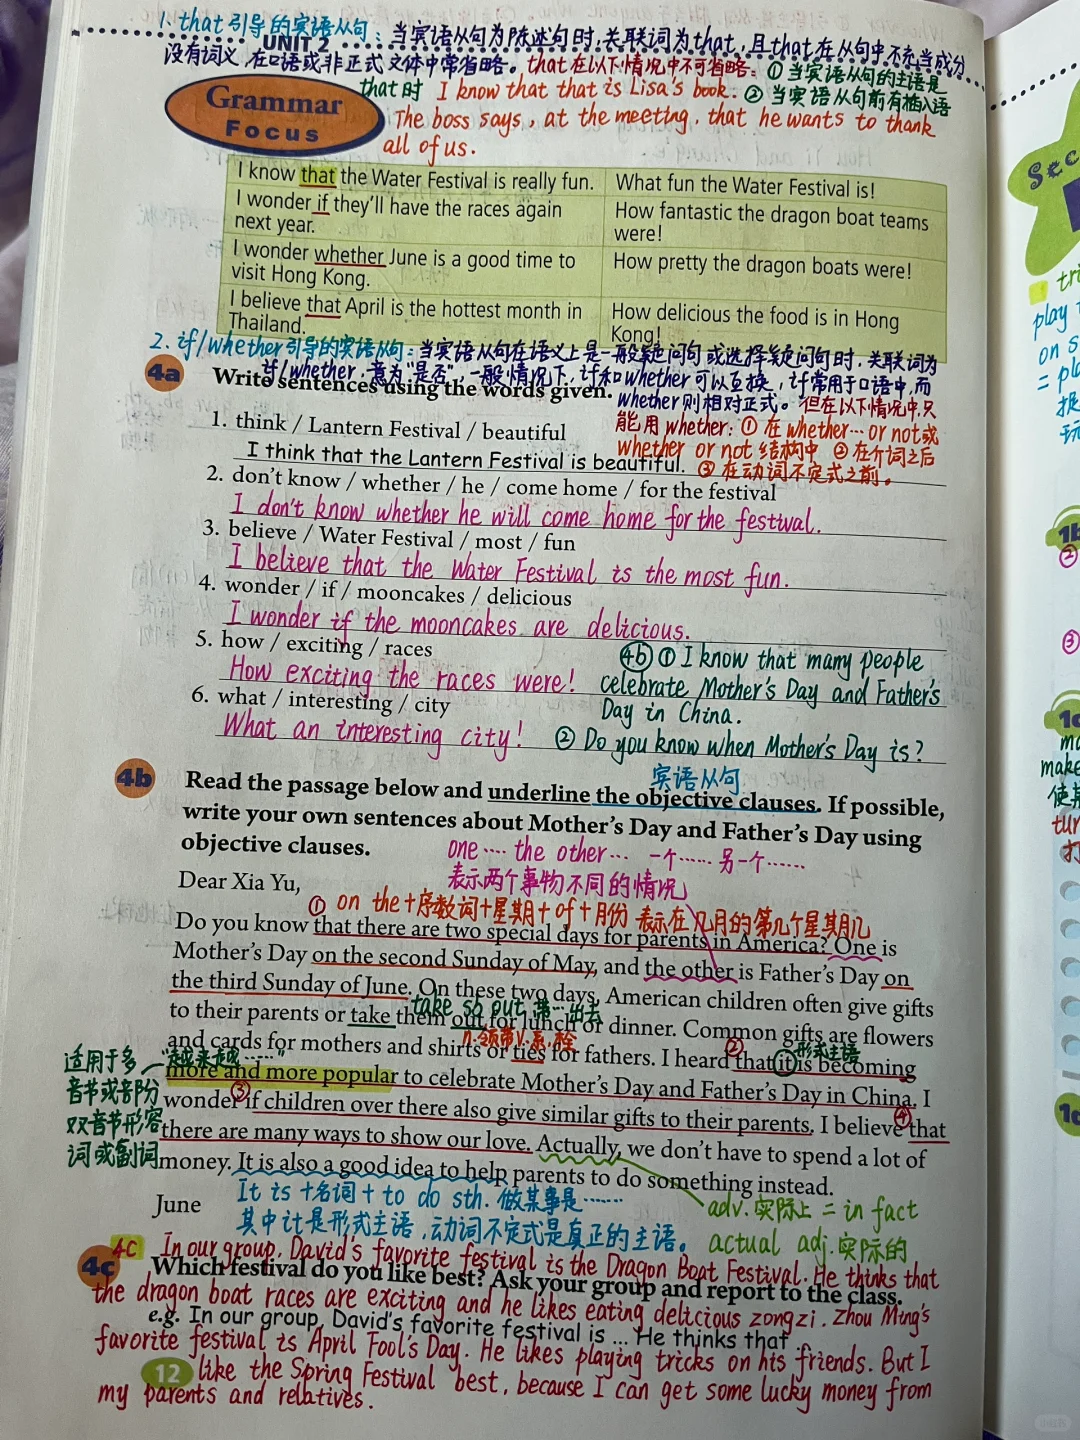 1. that引导的宾语从句：当宾语从句为陈述句时,关联词为that，且that在从句中不充当成分
UNIT 2
没有词义,在口语或非正式文体中常省略。that在以下情况中不可省略：①当宾语从句的主语是
that时 I know that that is Lisa's book. ②当宾语从句前有插入语
Grammar
Focus
The boss says, at the meeting, that he wants to thank
all of us.
I know that the Water Festival is really fun.
What fun the Water Festival is!
I wonder if they'll have the races again
next year.
How fantastic the dragon boat teams
were!
I wonder whether June is a good time to
visit Hong Kong.
How pretty the dragon boats were!
I believe that April is the hottest month in
Thailand.
How delicious the food is in Hong
Kong!
2. if/whether引导的宾语从句：当宾语从句在语义上是一般疑问句或选择疑问句时,关联词为
if/whether,意为"是否",一般情况下,if和whether可以互换,if常用于口语中,而
whether则相对正式。但在以下情况中,只
能用whether：①在whether…or not或
whether or not结构中 ②在介词之后
③在动词不定式之前。
4a Write sentences using the words given.
1. think / Lantern Festival / beautiful
I think that the Lantern Festival is beautiful.
2. don't know / whether / he / come home / for the festival
I don't know whether he will come home for the festival.
3. believe / Water Festival / most / fun
I believe that the Water Festival is the most fun.
4. wonder / if / mooncakes / delicious
I wonder if the mooncakes are delicious.
5. how / exciting / races
How exciting the races were!
6. what / interesting / city
What an interesting city!
4b ① I know that many people
celebrate Mother's Day and Father's
Day in China.
② Do you know when Mother's Day is?
宾语从句
4b Read the passage below and underline the objective clauses. If possible,
write your own sentences about Mother's Day and Father's Day using
objective clauses.
one…… the other… 一个…… 另一个……
表示两个事物不同的情况
Dear Xia Yu,
① on the+序数词+星期+of+月份 表示在几月的第几个星期几
Do you know that there are two special days for parents in America? One is
Mother's Day on the second Sunday of May, and the other is Father's Day on
the third Sunday of June. On these two days, American children often give gifts
take sb out 带…出去
to their parents or take them out for lunch or dinner. Common gifts are flowers
n.领带 v.系,拴
② 形式主语
and cards for mothers and shirts or ties for fathers. I heard that it is becoming
"越来越……"
适用于多
音节或部分
双音节形容
词或副词
more and more popular to celebrate Mother's Day and Father's Day in China. I
③ ④
wonder if children over there also give similar gifts to their parents. I believe that
there are many ways to show our love. Actually, we don't have to spend a lot of
money. It is also a good idea to help parents to do something instead.
June
It is +名词+ to do sth. 做某事是……
其中it是形式主语,动词不定式是真正的主语。
adv.实际上 = in fact
actual adj.实际的
4C In our group, David's favorite festival is the Dragon Boat Festival. He thinks that
4c Which festival do you like best? Ask your group and report to the class.
the dragon boat races are exciting and he likes eating delicious zongzi. Zhou Ming's
e.g. In our group, David's favorite festival is ... He thinks that
favorite festival is April Fool's Day. He likes playing tricks on his friends. But I
12
like the Spring Festival best, because I can get some lucky money from
my parents and relatives.
Sec
play
on s
1b
②
③
make
使